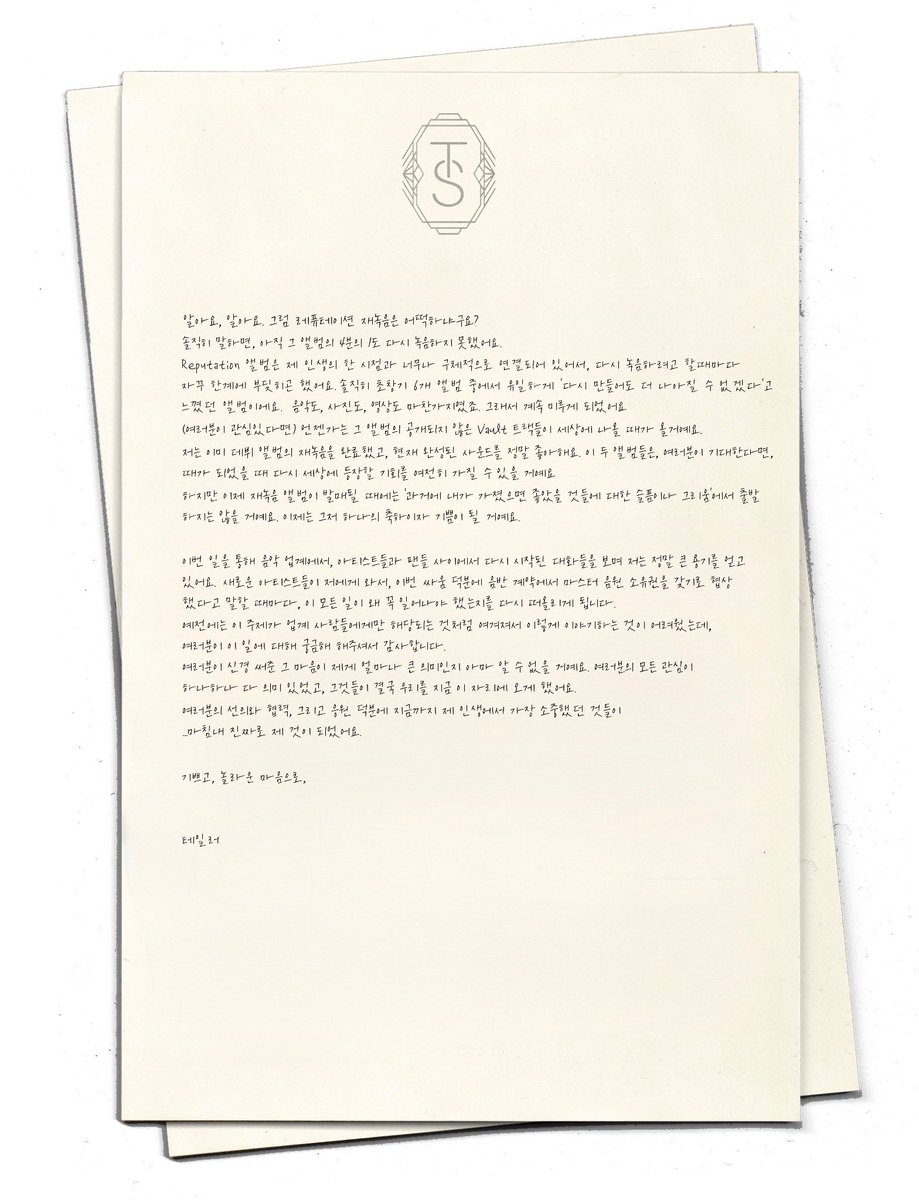 TS
알아요, 알아요. 그럼 레퓨테이션 재녹음은 어떡하냐구요?
솔직히 말하면, 아직 그 앨범의 4분의 1도 다시 녹음하지 못했어요.
Reputation 앨범은 제 인생의 한 시점과 너무나 구체적으로 연결되어 있어서, 다시 녹음하려고 할때마다
자꾸 한계에 부딪히곤 했어요. 솔직히 초창기 6개 앨범 중에서 유일하게 '다시 만들어도 더 나아질 수 없겠다'고
느꼈던 앨범이에요. 음악도, 사진도, 영상도 마찬가지였죠. 그래서 계속 미루게 되었어요.
(여러분이 관심있다면) 언젠가는 그 앨범의 공개되지 않은 Vault 트랙들이 세상에 나올 때가 올거예요.
저는 이미 데뷔 앨범의 재녹음을 완료했고, 현재 완성된 사운드를 정말 좋아해요. 이 두 앨범들은, 여러분이 기대한다면,
때가 되었을 때 다시 세상에 등장할 기회를 여전히 가질 수 있을 거예요.
하지만 이제 재녹음 앨범이 발매될 때에는 '과거에 내가 가졌으면 좋았을 것들에 대한 슬픔이나 그리움'에서 출발
하지는 않을 거예요. 이제는 그저 하나의 축하이자 기쁨이 될 거예요.
이번 일을 통해 음악 업계에서, 아티스트들과 팬들 사이에서 다시 시작된 대화들을 보며 저는 정말 큰 용기를 얻고
있어요. 새로운 아티스트들이 저에게 와서, 이번 싸움 덕분에 음반 계약에서 마스터 음원 소유권을 갖기로 협상
했다고 말할 때마다, 이 모든 일이 왜 꼭 일어나야 했는지를 다시 떠올리게 됩니다.
예전에는 이 주제가 업계 사람들에게만 해당되는 것처럼 여겨져서 이렇게 이야기하는 것이 어려웠는데,
여러분이 이 일에 대해 궁금해 해주셔서 감사합니다.
여러분이 신경 써준 그 마음이 제게 얼마나 큰 의미인지 아마 알 수 없을 거예요. 여러분의 모든 관심이
하나하나 다 의미 있었고, 그것들이 결국 우리를 지금 이 자리에 오게 했어요.
여러분의 선의와 협력, 그리고 응원 덕분에 지금까지 제 인생에서 가장 소중했던 것들이
…마침내 진짜로 제 것이 되었어요.
기쁘고, 놀라운 마음으로,
테일러